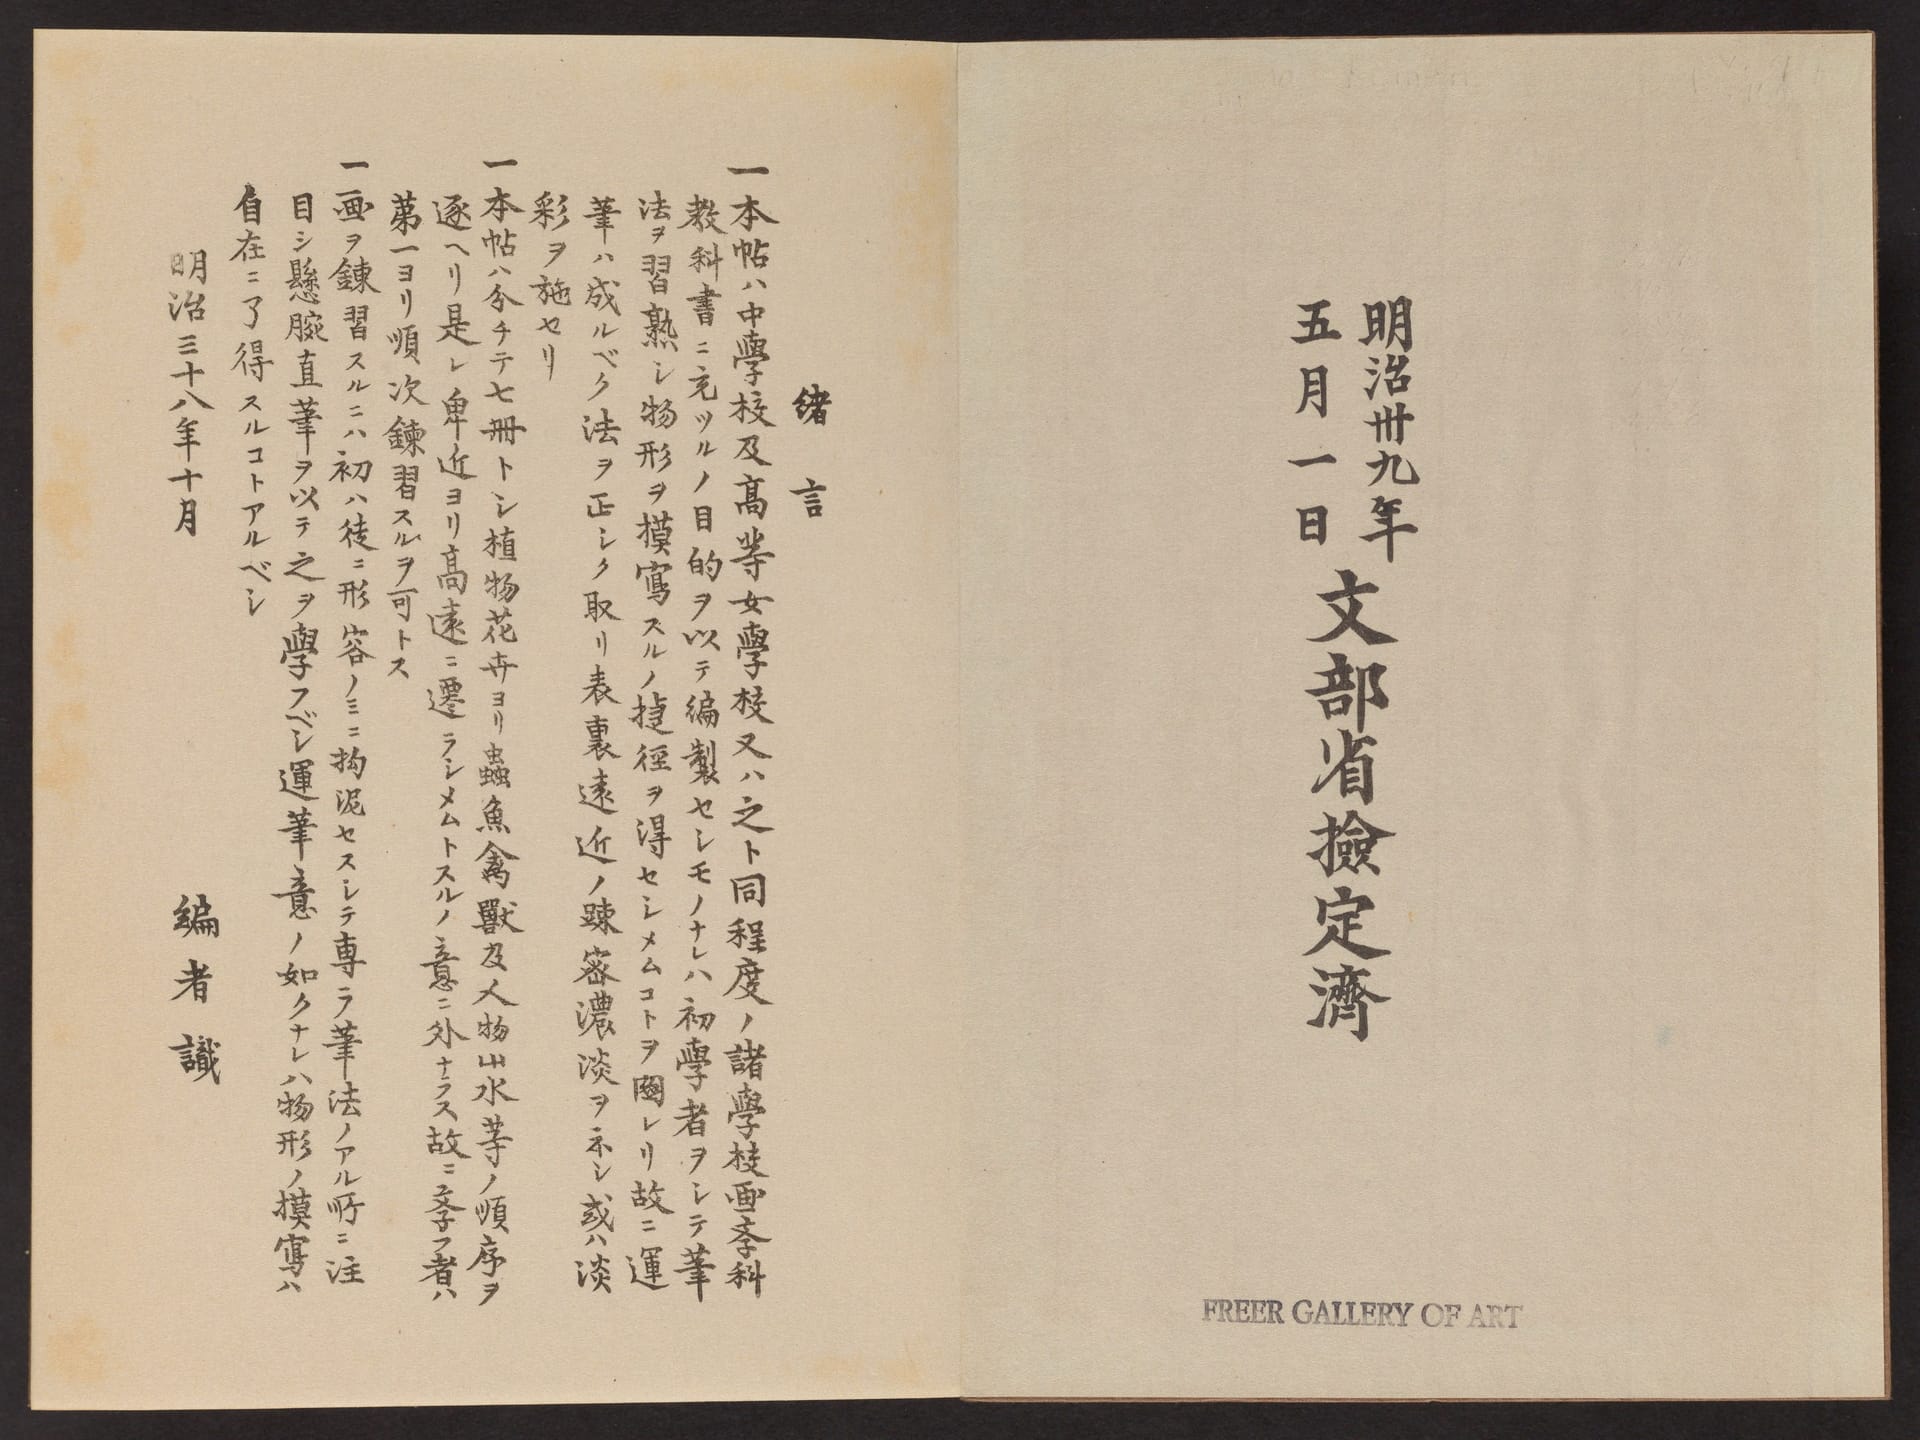 明治卅九年
五月一日
文部省撿定濟
FREER GALLERY OF ART
緒言
一本帖ハ中學校及高等女學校又ハ之ト同程度ノ諸學校画斈科
教科書ニ充ツルノ目的ヲ以テ編製セシモノナレハ初學者ヲシテ筆
法ヲ習熟シ物形ヲ摸寫スルノ捷徑ヲ得セシメムコトヲ圖レリ故ニ運
筆ハ成ルベク法ヲ正シク取リ表裏遠近ノ疎密濃淡ヲ示シ或ハ淡
彩ヲ施セリ
一本帖ハ分チテ七冊トシ植物花卉ヨリ蟲魚禽獸及人物山水等ノ順序ヲ
逐ヘリ是レ卑近ヨリ高遠ニ遷ラシメムトスルノ意ニ外ナラス故ニ斈フ者ハ
第一ヨリ順次鍊習スルヲ可トス
一画ヲ鍊習スルニハ初ハ徒ニ形容ノミニ拘泥セスシテ専ラ筆法ノアル所ニ注
目シ懸腕直筆ヲ以テ之ヲ學フベシ運筆意ノ如クナレハ物形ノ摸寫ハ
自在ニ了得スルコトアルベシ
明治三十八年十月
編者識